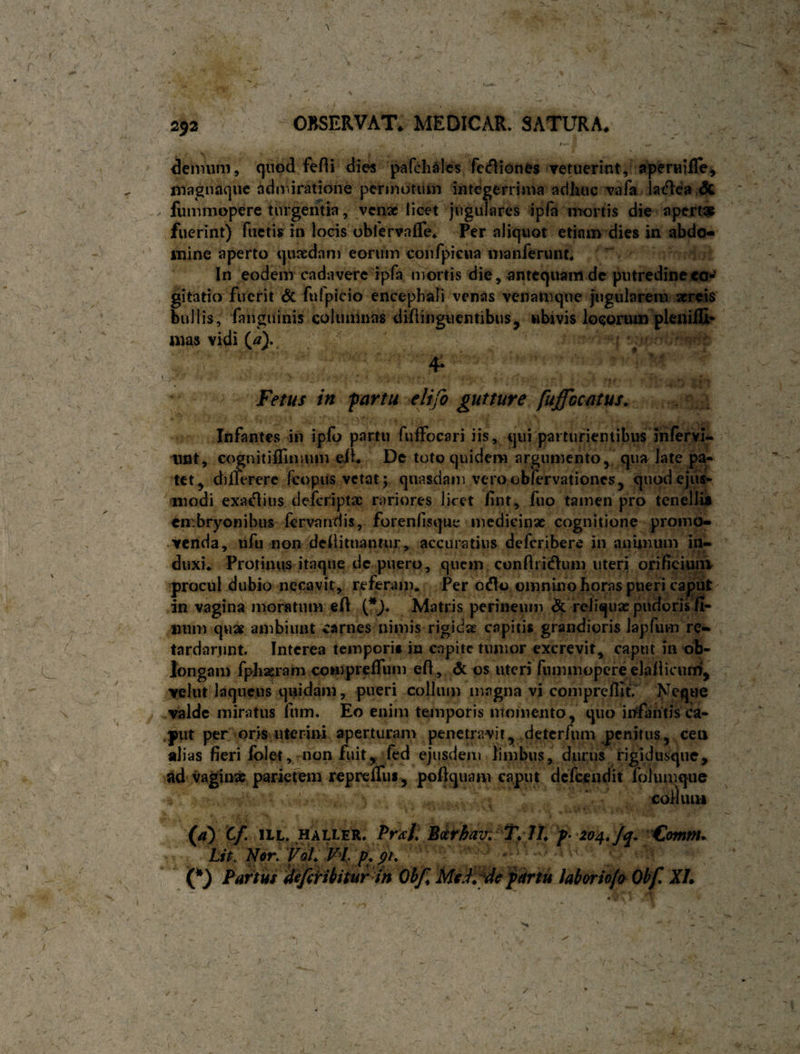 292 OBSERVAT. MEDICAR. SATURA.
demum, quod feſti dies paſchâles ſectiones vetuerint, aperuiſſe,
magnaque admiratione permotum integerrima adhuc vaſa lactea &
ſummopere turgentia, venæ licet jugulares ipſa mortis die apertæ
fuerint) ſuetis in locis obſervaſſe. Per aliquot etiam dies in abdo-
mine aperto quædam eorum conſpicua manſerunt.
In eodem cadavere ipſa mortis die, antequam de putredine co-
gitatio fuerit & ſuſpicio encephali venas venamque jugularem æreis
bullis, ſanguinis columnas diſtinguentibus, ubivis locorum pleniſſi-
mas vidi (a).
4.
Fetus in partu eliſo gutture ſuffocatus.
Infantes in ipſo partu ſuffocari iis, qui parturientibus inſervi-
unt, cognitiſſimum eſt. De toto quidem argumento, qua late pa-
tet, diſſerere ſcopus vetat; quasdam vero obſervationes, quod ejus-
modi exactius deſcriptæ rariores licet ſint, ſuo tamen pro tenellis
embryonibus ſervandis, forenſisque medicinæ cognitione promo-
venda, uſu non deſtituantur, accuratius deſcribere in animum in-
duxi. Protinus itaque de puero, quem conſtrictum uteri orificium
procul dubio necavit, referam. Per octo omnino horas pueri caput
in vagina moratum eſt (*). Matris perineum & reliquæ pudoris ſi-
num quæ ambiunt carnes nimis rigidæ capitis grandioris lapſum re-
tardarunt. Interea temporis in capite tumor excrevit, caput in ob-
longam ſphæram compreſſum eſt, & os uteri ſummopere elaſticum,
velut laqueus quidam, pueri collum magna vi compreſſit. Neque
valde miratus ſum. Eo enim temporis momento, quo infantis ca-
put per oris uterini aperturam penetravit, deterſum penitus, ceu
alias fieri ſolet, non fuit, ſed ejusdem limbus, durus rigidusque,
ad vaginæ parietem repreſſus, poſtquam caput deſcendit ſolumque
collum
(a) Cf. ILL. HALLER. Præl. Bœrhav. T. II. p. 204. ſq. Comm.
Lit. Nor. Vol. VI. p. 91.
(*) Partus deſcribitur in Obſ. Med. de partu laborioſo Obſ. XI.